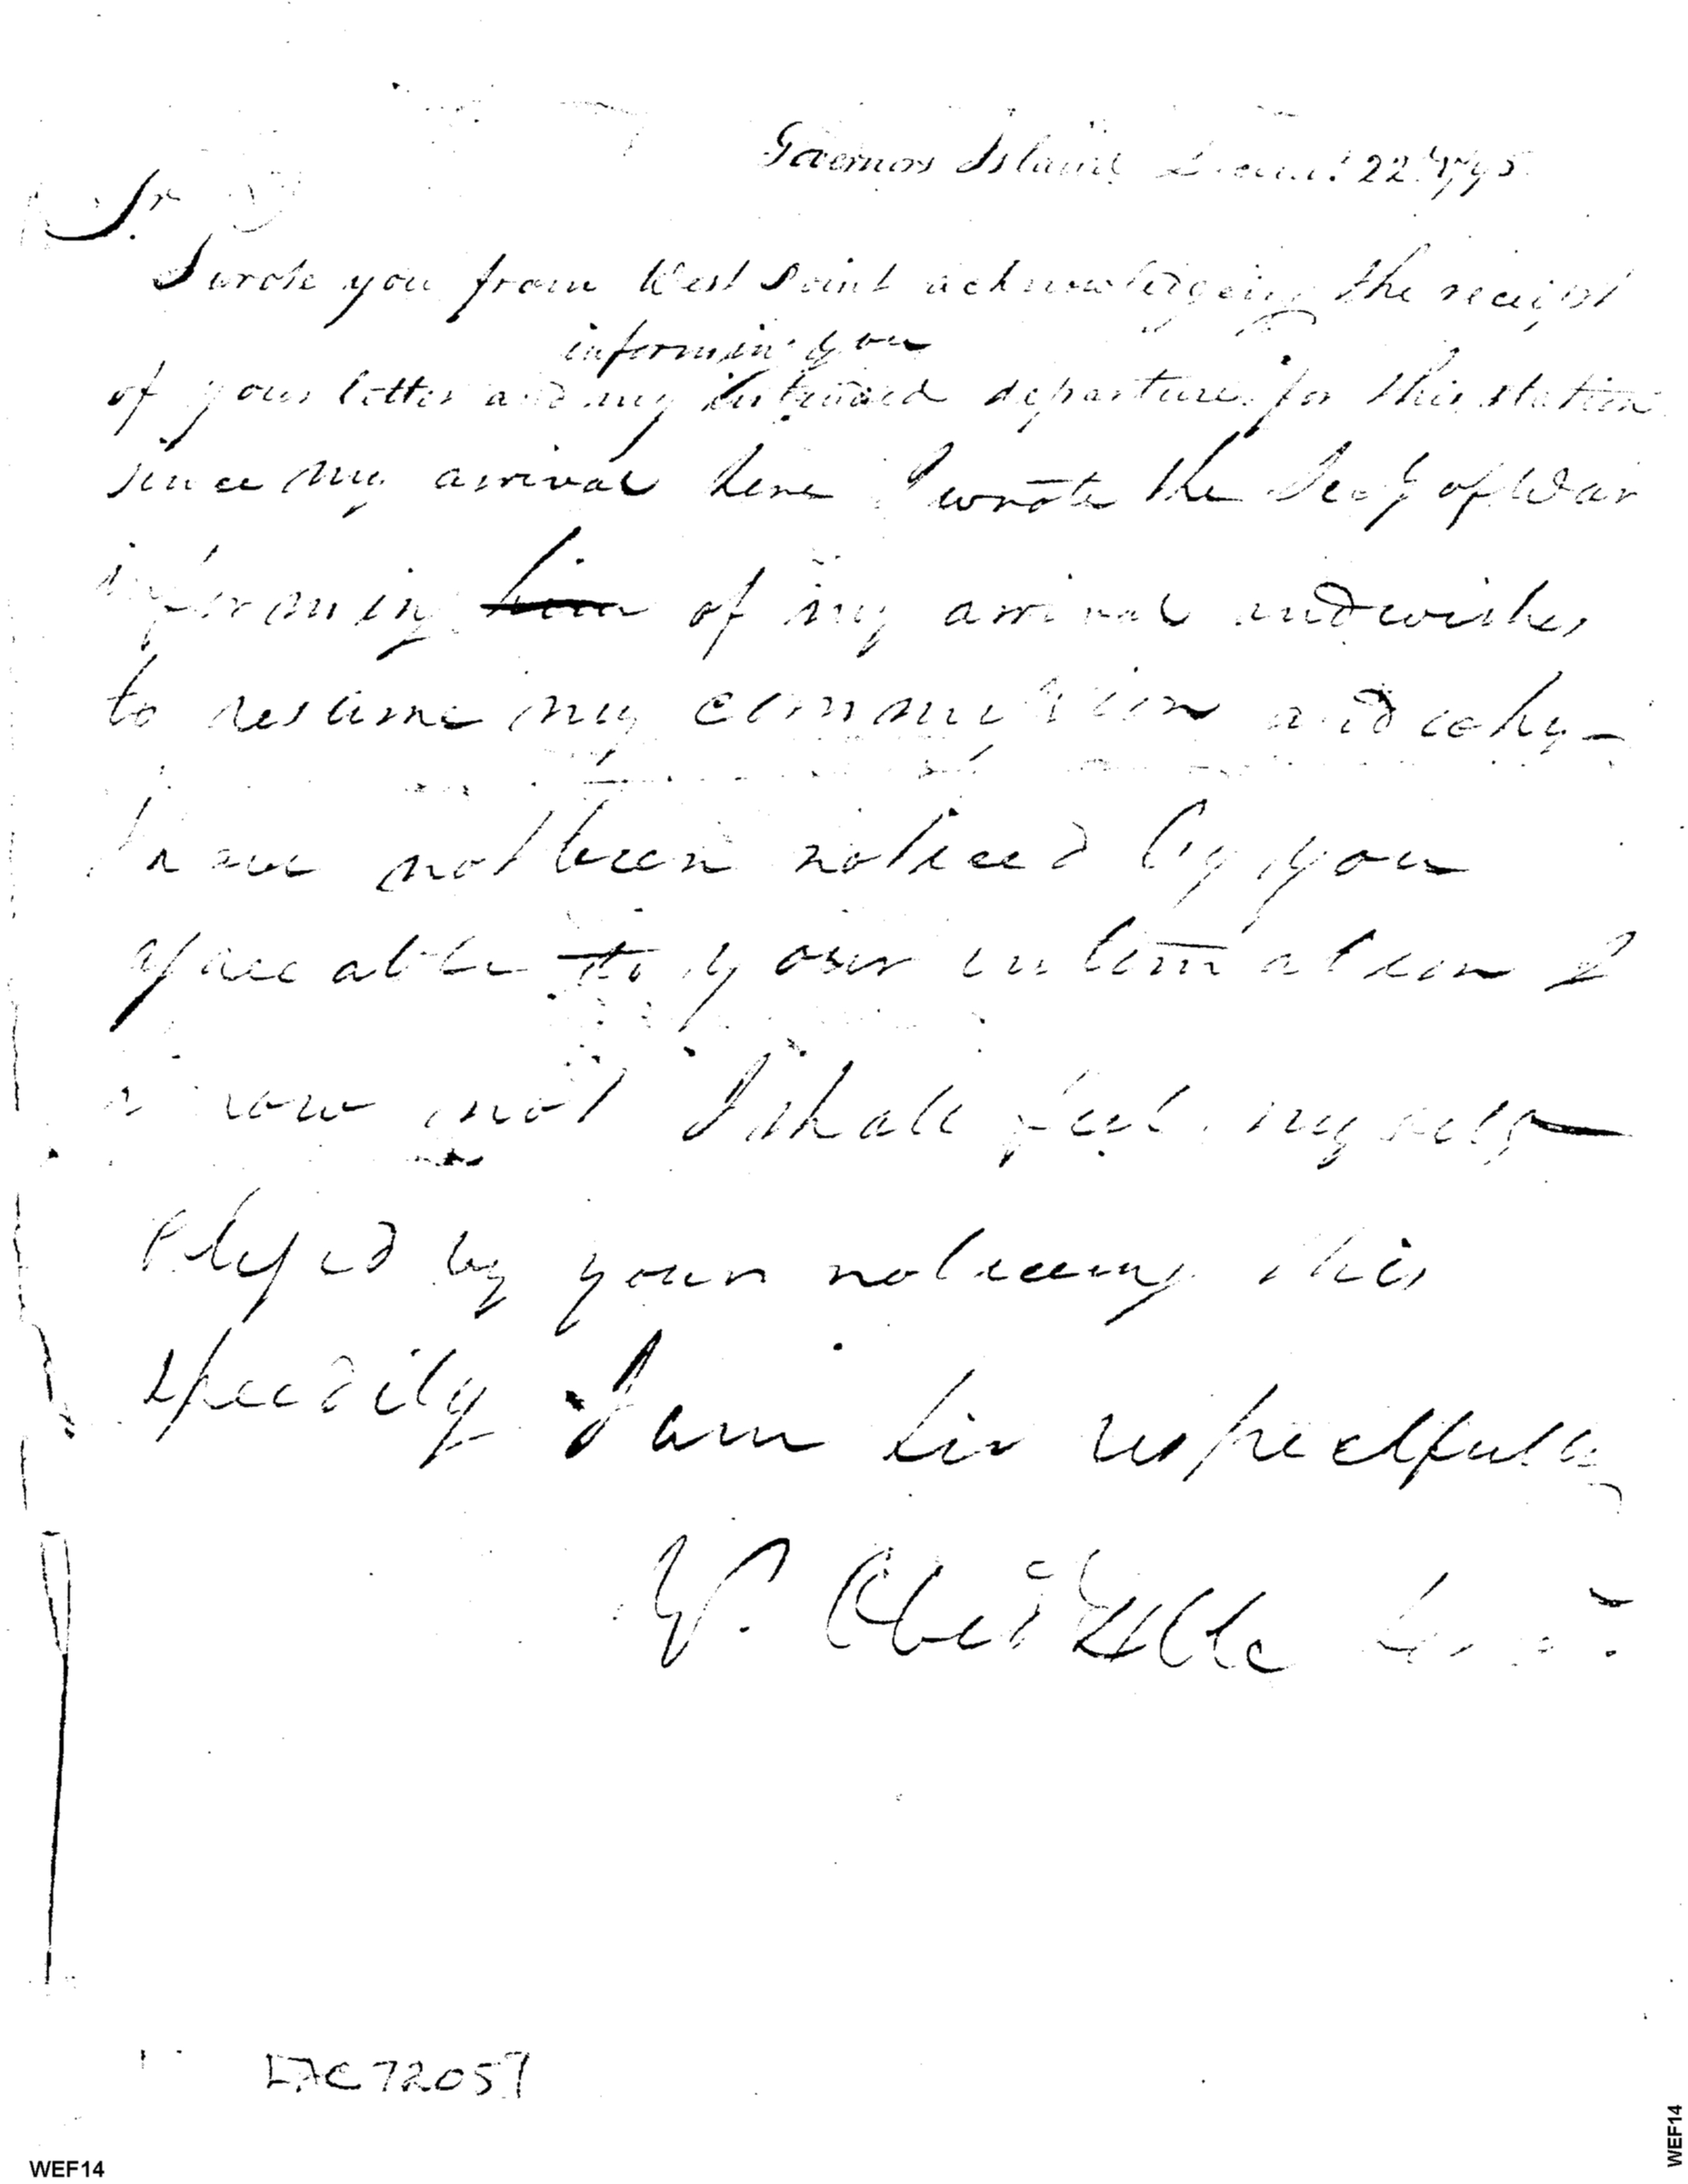 Governors Island Decem! 22 1795
Sr
I wrote you from West Point acknowledgeing the receipt
informing you
of your letter and my intended departure for this station
since my arrival here I wrote the Secy of War
informing him of my arrival and wishes
to resume my commission and why
I have not been noticed by you
agreeable to your intimation I
know not I shall feel myself
oblyed by your noticeing this
speedily I am Sir respectfully
W.
LAC 72057
WEF14
WEF14